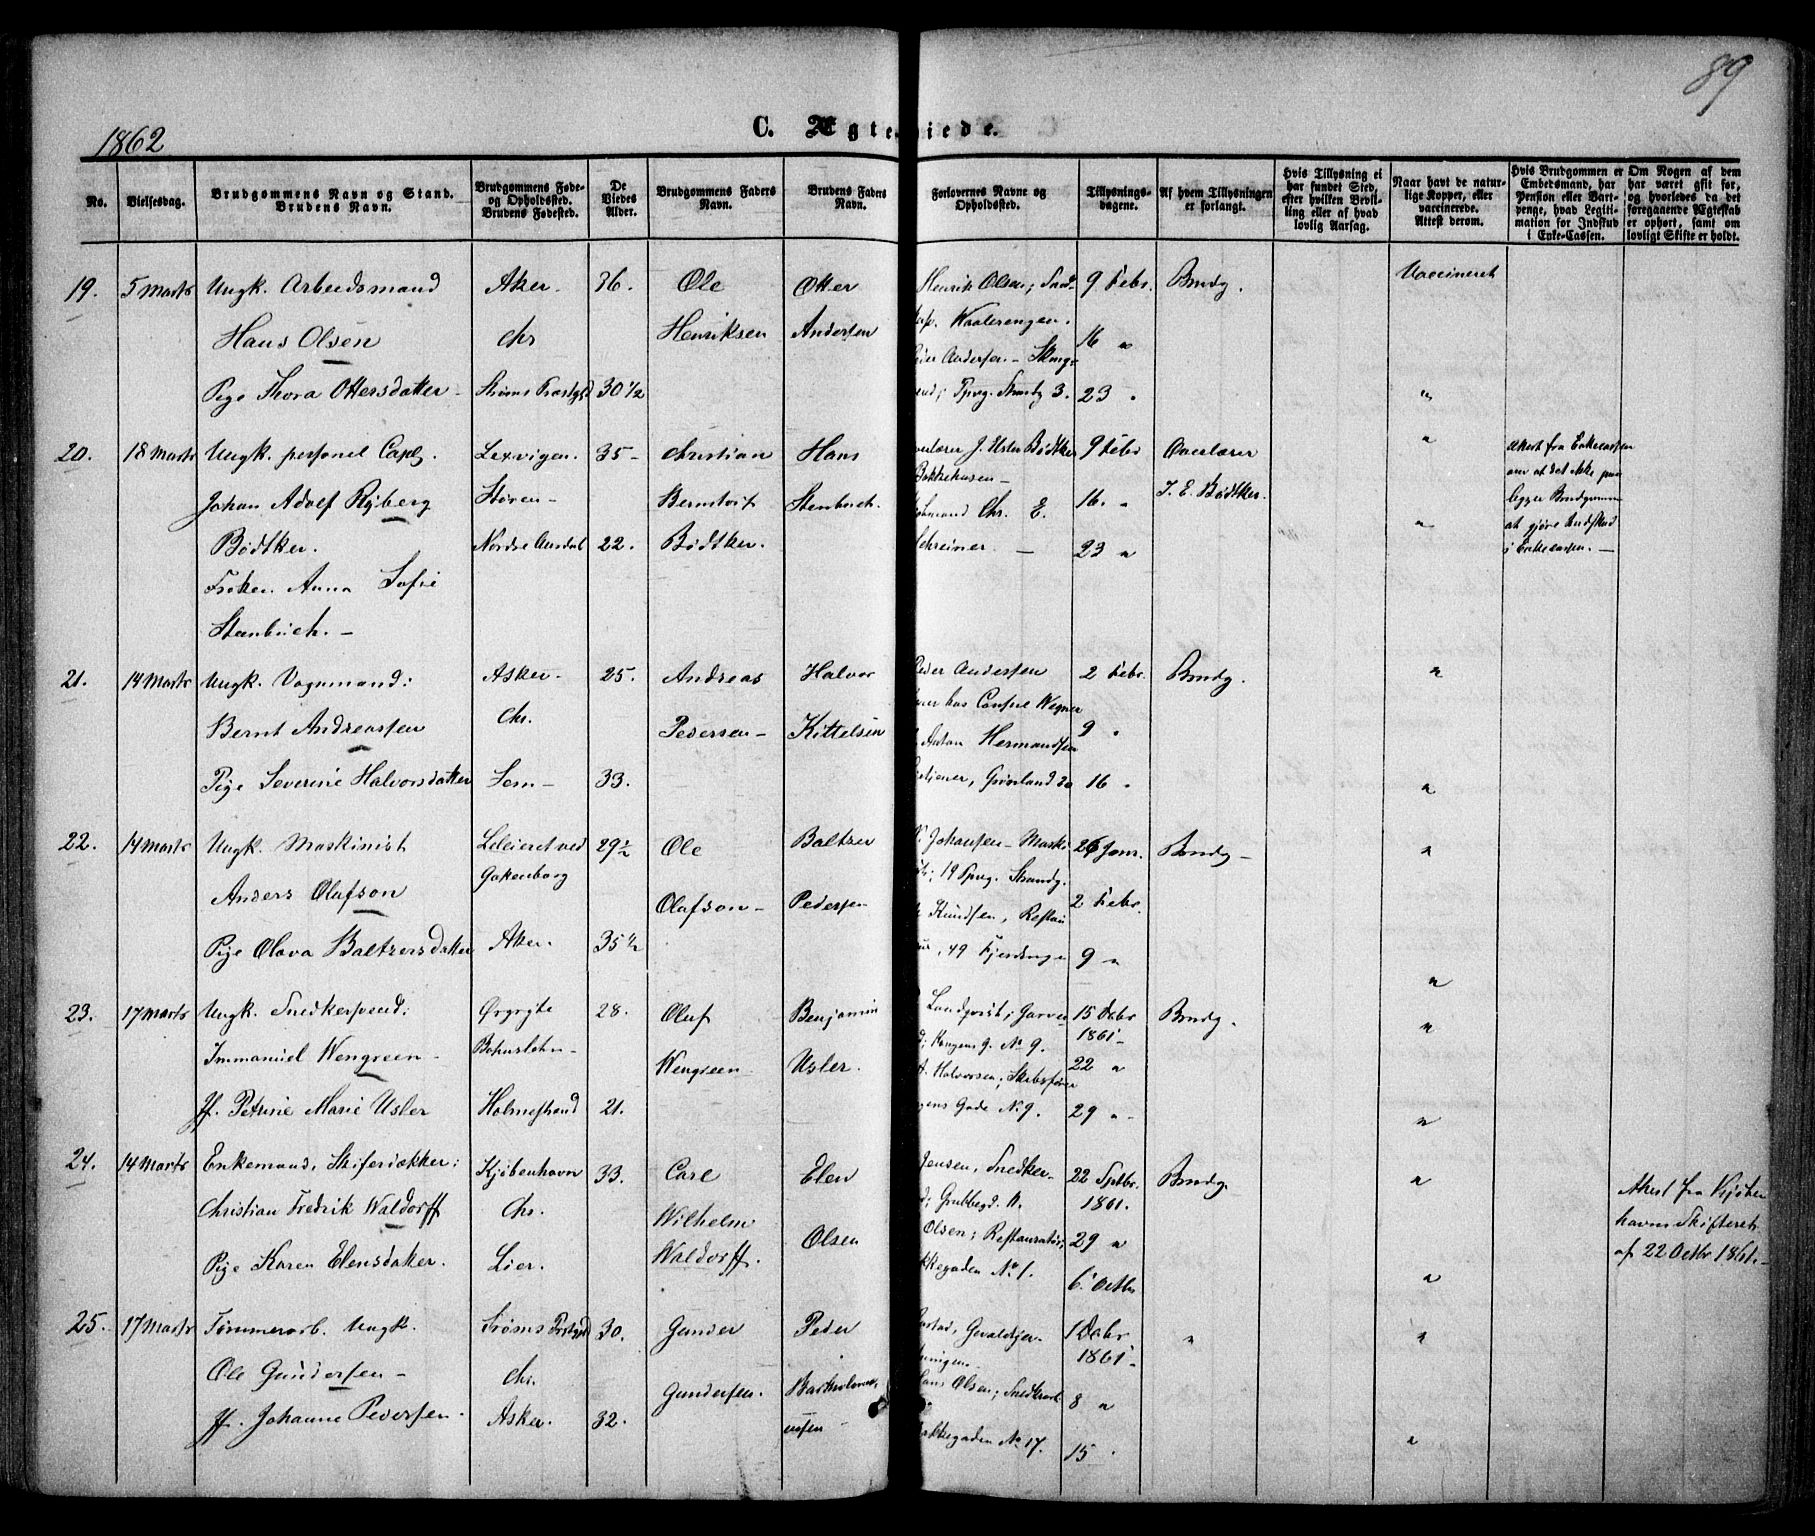 89
1862
C. Ægteviede.
No.
Vielsesdag.
Brudgommens Navn og Stand.
Brudens Navn.
Brudgommens Føde-
og Opholdssted.
Brudens Fødested.
De
Viedes
Alder.
Brudgommens Faders
Navn.
Brudens Faders
Navn.
Forlovernes Navne og
Opholdssted.
Tillysnings-
dagene.
Af hvem Tillysningen
er forlangt.
Hvis Tillysning ei
har fundet Sted,
efter hvilken Bevil-
ling eller af hvad
lovlig Aarsag.
Naar havt de natur-
lige Kopper, eller
vaccinerede.
Attest derom.
Hvis Brudgommen er
Embedsmand, har
Pension eller Vart-
penge, hvad Legiti-
mation for Indskud
i Enke-Cassen.
Om Nogen af dem
har været gift før,
og hvorledes da det
foregaaende Ægteskab
er ophørt, samt om
lovligt Skifte er holdt.
19. 5 Marts Ungk. Arbeidsmand Aker. 36. Ole Otter Henrik Olsen; 9 Febr. Brudg. Vaccineret
Hans Olsen Chr Henriksen Andersen Waalerengen. 16 "
Andersen -
Pige Thora Ottersdatter - Strøms Præstgjd 30 1/2 3. 23 " "
20. 18 Marts Ungk. personel Capl. Lexvigen. 35 - Christian Hans J. Bødtker 9 Febr Overlærer " Attest fra Enkecassen
Bakkehusen - om at det ikke paa
Johan Adolf Ryberg Støren - Berntvit Stenbuch. Chr. E. 16. " J. E. Bødtker. ligger Brudgommen
Bødtker. Nordre Aurdal 22. Bødtker. Schreiner. - 23 " " at gjøre Indskud
i Enkecassen. -
Frøken Anna Sofie
Stenbuch. -
21. 14 Marts Ungk. Vognmand: Asker - 25. Andreas Halvor Peder Andersen 2 Febr. Brudg. "
hos Consul Wegner
Bernt Andreassen Chr. Pedersen - Kittelsen Anton Hermandsen 9 "
Pige Severine Halvorsdatter Sem - 33. Grønland 30 16 " "
22. 14 Marts Ungk. Maskinist Leleieret ved 29 1/2 Ole Baltzer Johansen - 26 Janr. Brudg - "
Anders Olafson Gøkenborg Olafson - Pedersen 19 Strandg. 2 Febr.
Knudsen, Restau
Pige Olava Baltzersdatter Aker. 35 1/2 49 9 "
"
23. 17 Marts Ungk. Snedkersvend: Ørgryte 28. Oluf Benjamin 15 Debr Brudg. "
Immanuel Wengreen - Bohuslehn - Wengreen Usler. Kongens g. No 9. 1861 -
Halvorsen; 22 "
Jf. Petrine Marie Usler Holmestrand 21. gens Gade No 9. 29 " - "
24. 14 Marts Enkemand, Skiferdækker: Kjøbenhavn 33. Carl Elen Jensen, Snedker- 22 Sptbr. Brudg. " Attest fra Kjøben
Christian Fredrik Waldorff Chr. Wilhelm Olsen Grubbegd. 11. 1861. havns Skifteret
Olsen; Restauratør, 29 "
Pige Karen Elensdatter. Lier. Waldorff. kegaden No 1. 6 Octbr " af 22 Octbr 1861. -
25. 17 Marts Tømmerarb. Ungk. Strøms Prstgjd 30. Gunder Peder 1 Debr " "
1861 -
Ole Gundersen - Chr. Gundersen. Bartholome- Hans Olsen; 8 "
Jf. Johanne Pedersen. Asker. 32. ussen - No 17. 15 " "